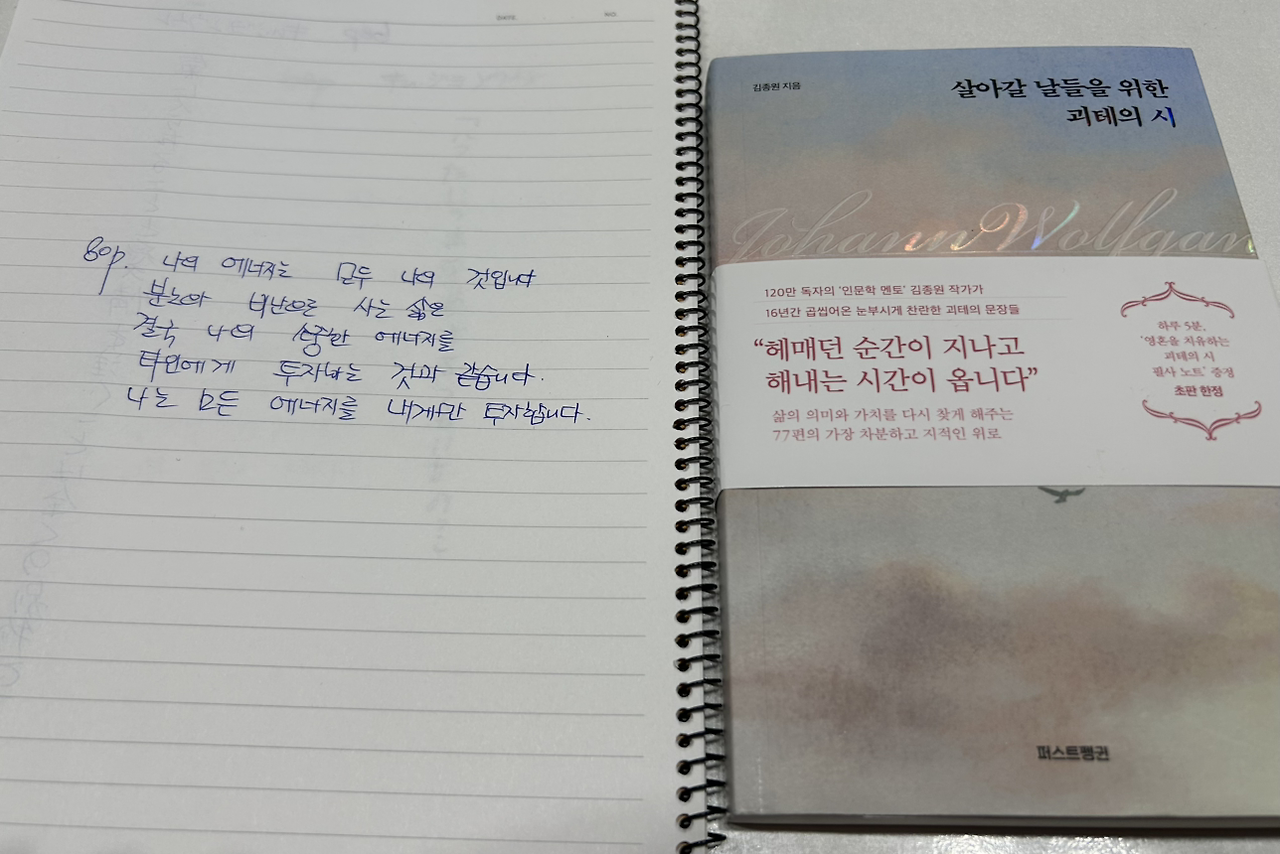 DATE. NO.
80p. 나의 에너지는 모두 나의 것입니다
분노와 비난으로 사는 삶은
결국 나의 소중한 에너지를
타인에게 투자하는 것과 같습니다.
나는 모든 에너지를 내게만 투자합니다.
김종원 지음
살아갈 날들을 위한
괴테의 시
Johann Wolfgan
120만 독자의 '인문학 멘토' 김종원 작가가
16년간 곱씹어온 눈부시게 찬란한 괴테의 문장들
“헤매던 순간이 지나고
해내는 시간이 옵니다”
삶의 의미와 가치를 다시 찾게 해주는
77편의 가장 차분하고 지적인 위로
하루 5분,
'영혼을 치유하는
괴테의 시
필사 노트' 증정
초판 한정
퍼스트펭귄